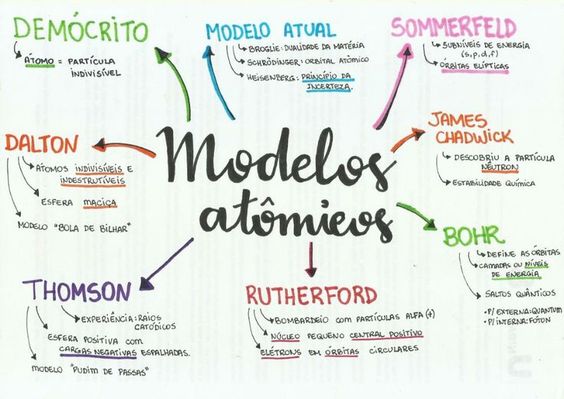 DEMÓCRITO
ÁTOMO = PARTÍCULA
INDIVISÍVEL
MODELO ATUAL
BROGLIE: DUALIDADE DA MATÉRIA
SCHRÖDINGER: ORBITAL ATÔMICO
HEISENBERG: PRINCÍPIO DA
INCERTEZA.
SOMMERFELD
SUBNÍVEIS DE ENERGIA
(s,p,d,f)
ÓRBITAS ELÍPTICAS
DALTON
ÁTOMOS INDIVISÍVEIS E
INDESTRUTÍVEIS
ESFERA MACIÇA
MODELO "BOLA DE BILHAR"
Modelos
atômicos
JAMES
CHADWICK
DESCOBRIU A PARTÍCULA
NÊUTRON
ESTABILIDADE QUÍMICA
BOHR
DEFINE AS ÓRBITAS
CAMADAS OU NÍVEIS
DE ENERGIA
SALTOS QUÂNTICOS
• P/ EXTERNA: QUANTUM
• P/ INTERNA: FÓTON
THOMSON
EXPERIÊNCIA: RAIOS
CATÓDICOS
ESFERA POSITIVA COM
CARGAS NEGATIVAS ESPALHADAS.
MODELO "PUDIM DE PASSAS"
RUTHERFORD
BOMBARDEIO COM PARTÍCULAS ALFA (+)
NÚCLEO PEQUENO CENTRAL POSITIVO
ELÉTRONS EM ÓRBITAS CIRCULARES